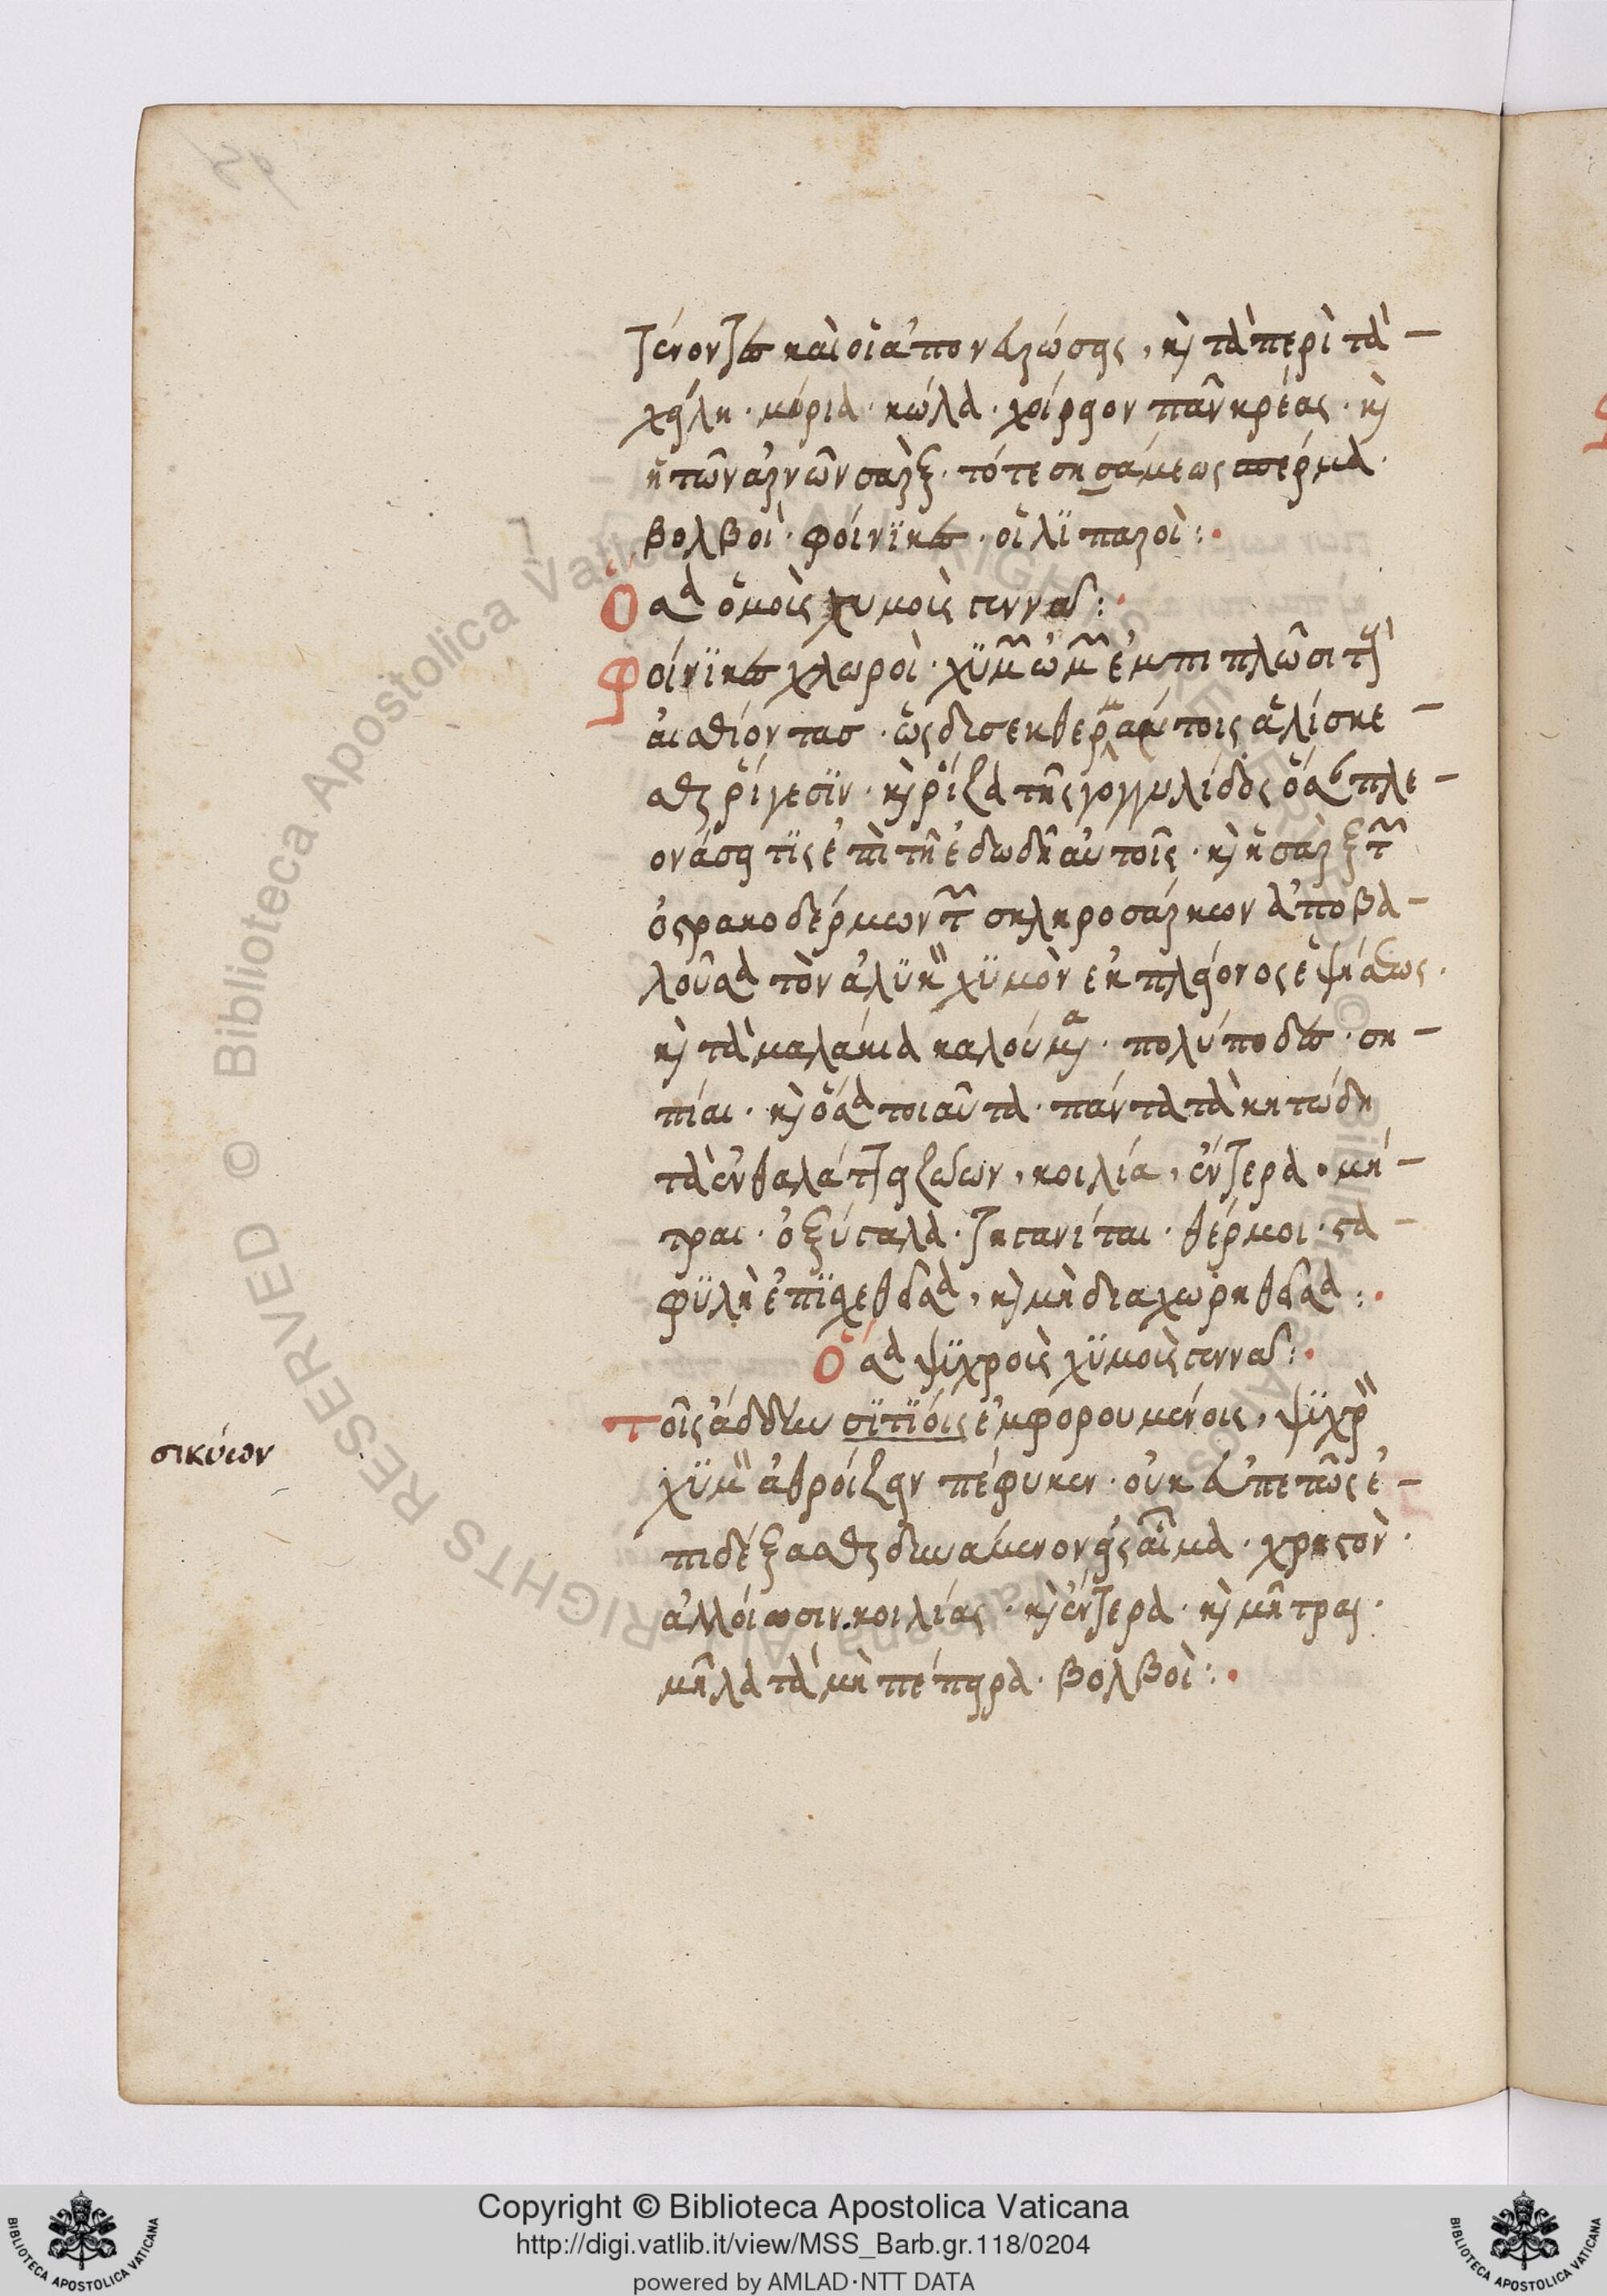 τένοντες καὶ οἱ ἀπονευρώσεις, καὶ τὰ περὶ τὰ
χείλη· μόρια· κῶλα· χοίρειον πᾶν κρέας· καὶ
ἡ τῶν ἀγνῶν σὰρξ· τό τε σησάμεως σπέρμα·
βολβοὶ· φοίνϊκες· οἱ λϊπαροὶ:
Ὅσα ὁμοῖς χυμοῖς γεννᾶ:
Φοίνϊκες χλωροὶ· χϋμῶν ὠμῶν ἐμπιπλῶσι τοὺς
ἐσθίοντας· ὡς δυσεκθερμάντοις ἁλίσκε
σθαι ῥίγεσϊν· καὶ ῥίζα τῆς γογγυλίδος ὅταν πλε
ονάσῃ τϊς ἐπὶ τῇ ἐδωδῇ αὐτοῖς· καὶ ἡ σὰρξ τῶν
ὀστρακοδέρμων τῶν σκληροσάρκων ἀποβα
λοῦσα τὸν ἁλϋκὸν χϋμὸν ἐκ πλείονος ἑψήσεως·
καὶ τὰ μαλάκια καλούμενα· πολύποδες· ση
πίαι· καὶ ὅσα τοιαῦτα· πάντα τὰ κητώδη
τὰ ἐν θαλάττῃ ζώων, κοιλία, ἔντερα· μή
τραι· ὀξύγαλα· ζητανίται· θέρμοι· στα
φϋλὴ ἐπϊσχεθεῖσα, καὶ μὴ διαχωρηθεῖσα:
Ὅσα ψϋχροῖς χϋμοῖς γεννᾶ:
Τοῖς ἄδδην σϊτϊοις ἐμφορουμένοις, ψϋχρὸν
χϋμὸν ἀθροίζειν πέφυκεν· οὐκ ἀπεπτῶς ἐ
πιδέξασθαι δυνάμενον εἰς αἷμα· χρηστὸν
ἀλλοίωσιν. κοιλίας· καὶ ἔντερα· καὶ μῆτραι·
μῆλα τὰ μὴ πέπειρα· βολβοὶ:
σικύων
Copyright © Biblioteca Apostolica Vaticana
http://digi.vatlib.it/view/MSS_Barb.gr.118/0204
powered by AMLAD·NTT DATA